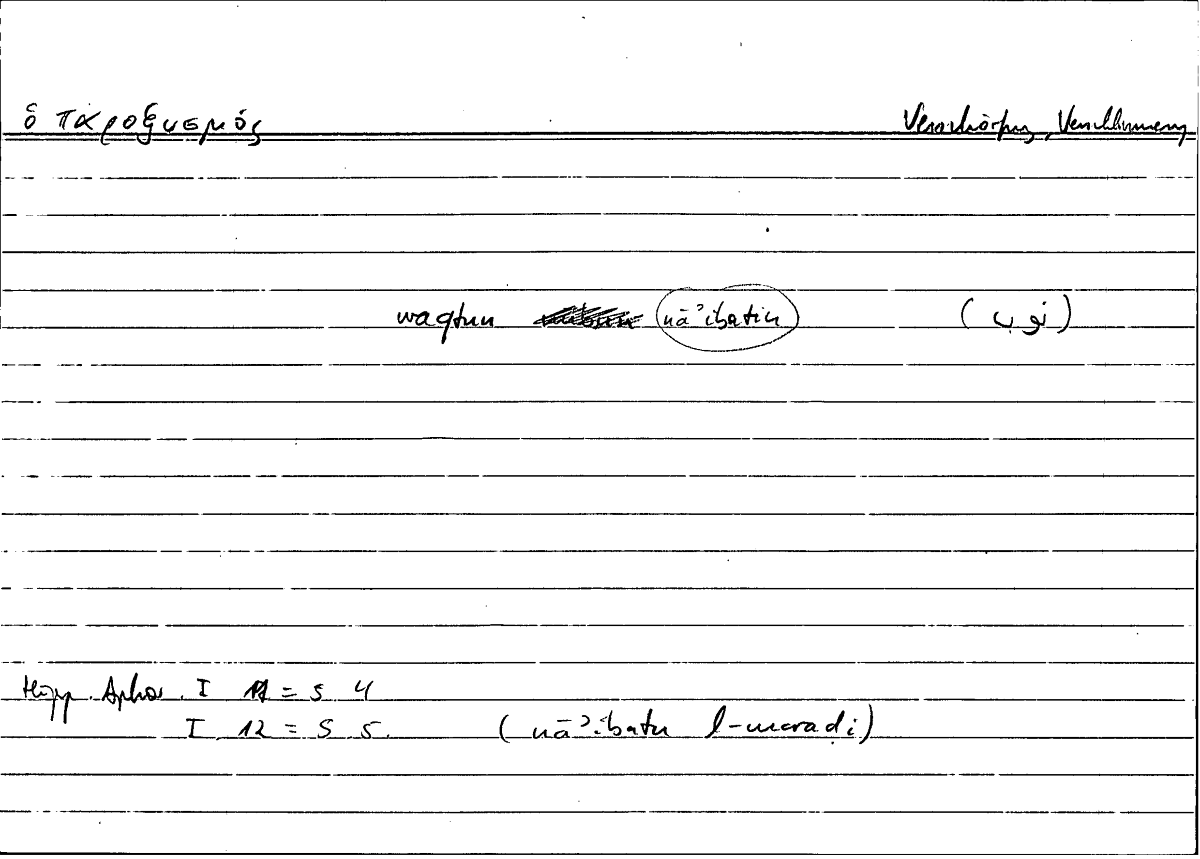 ὁ παροξυσμός Verschärfung, Verschlimmerung
waqtun nāʾibatin (نوب)
Hipp. Aphor. I 11 = S 4
I 12 = S 5. (nāʾibatu l-maraḍi)